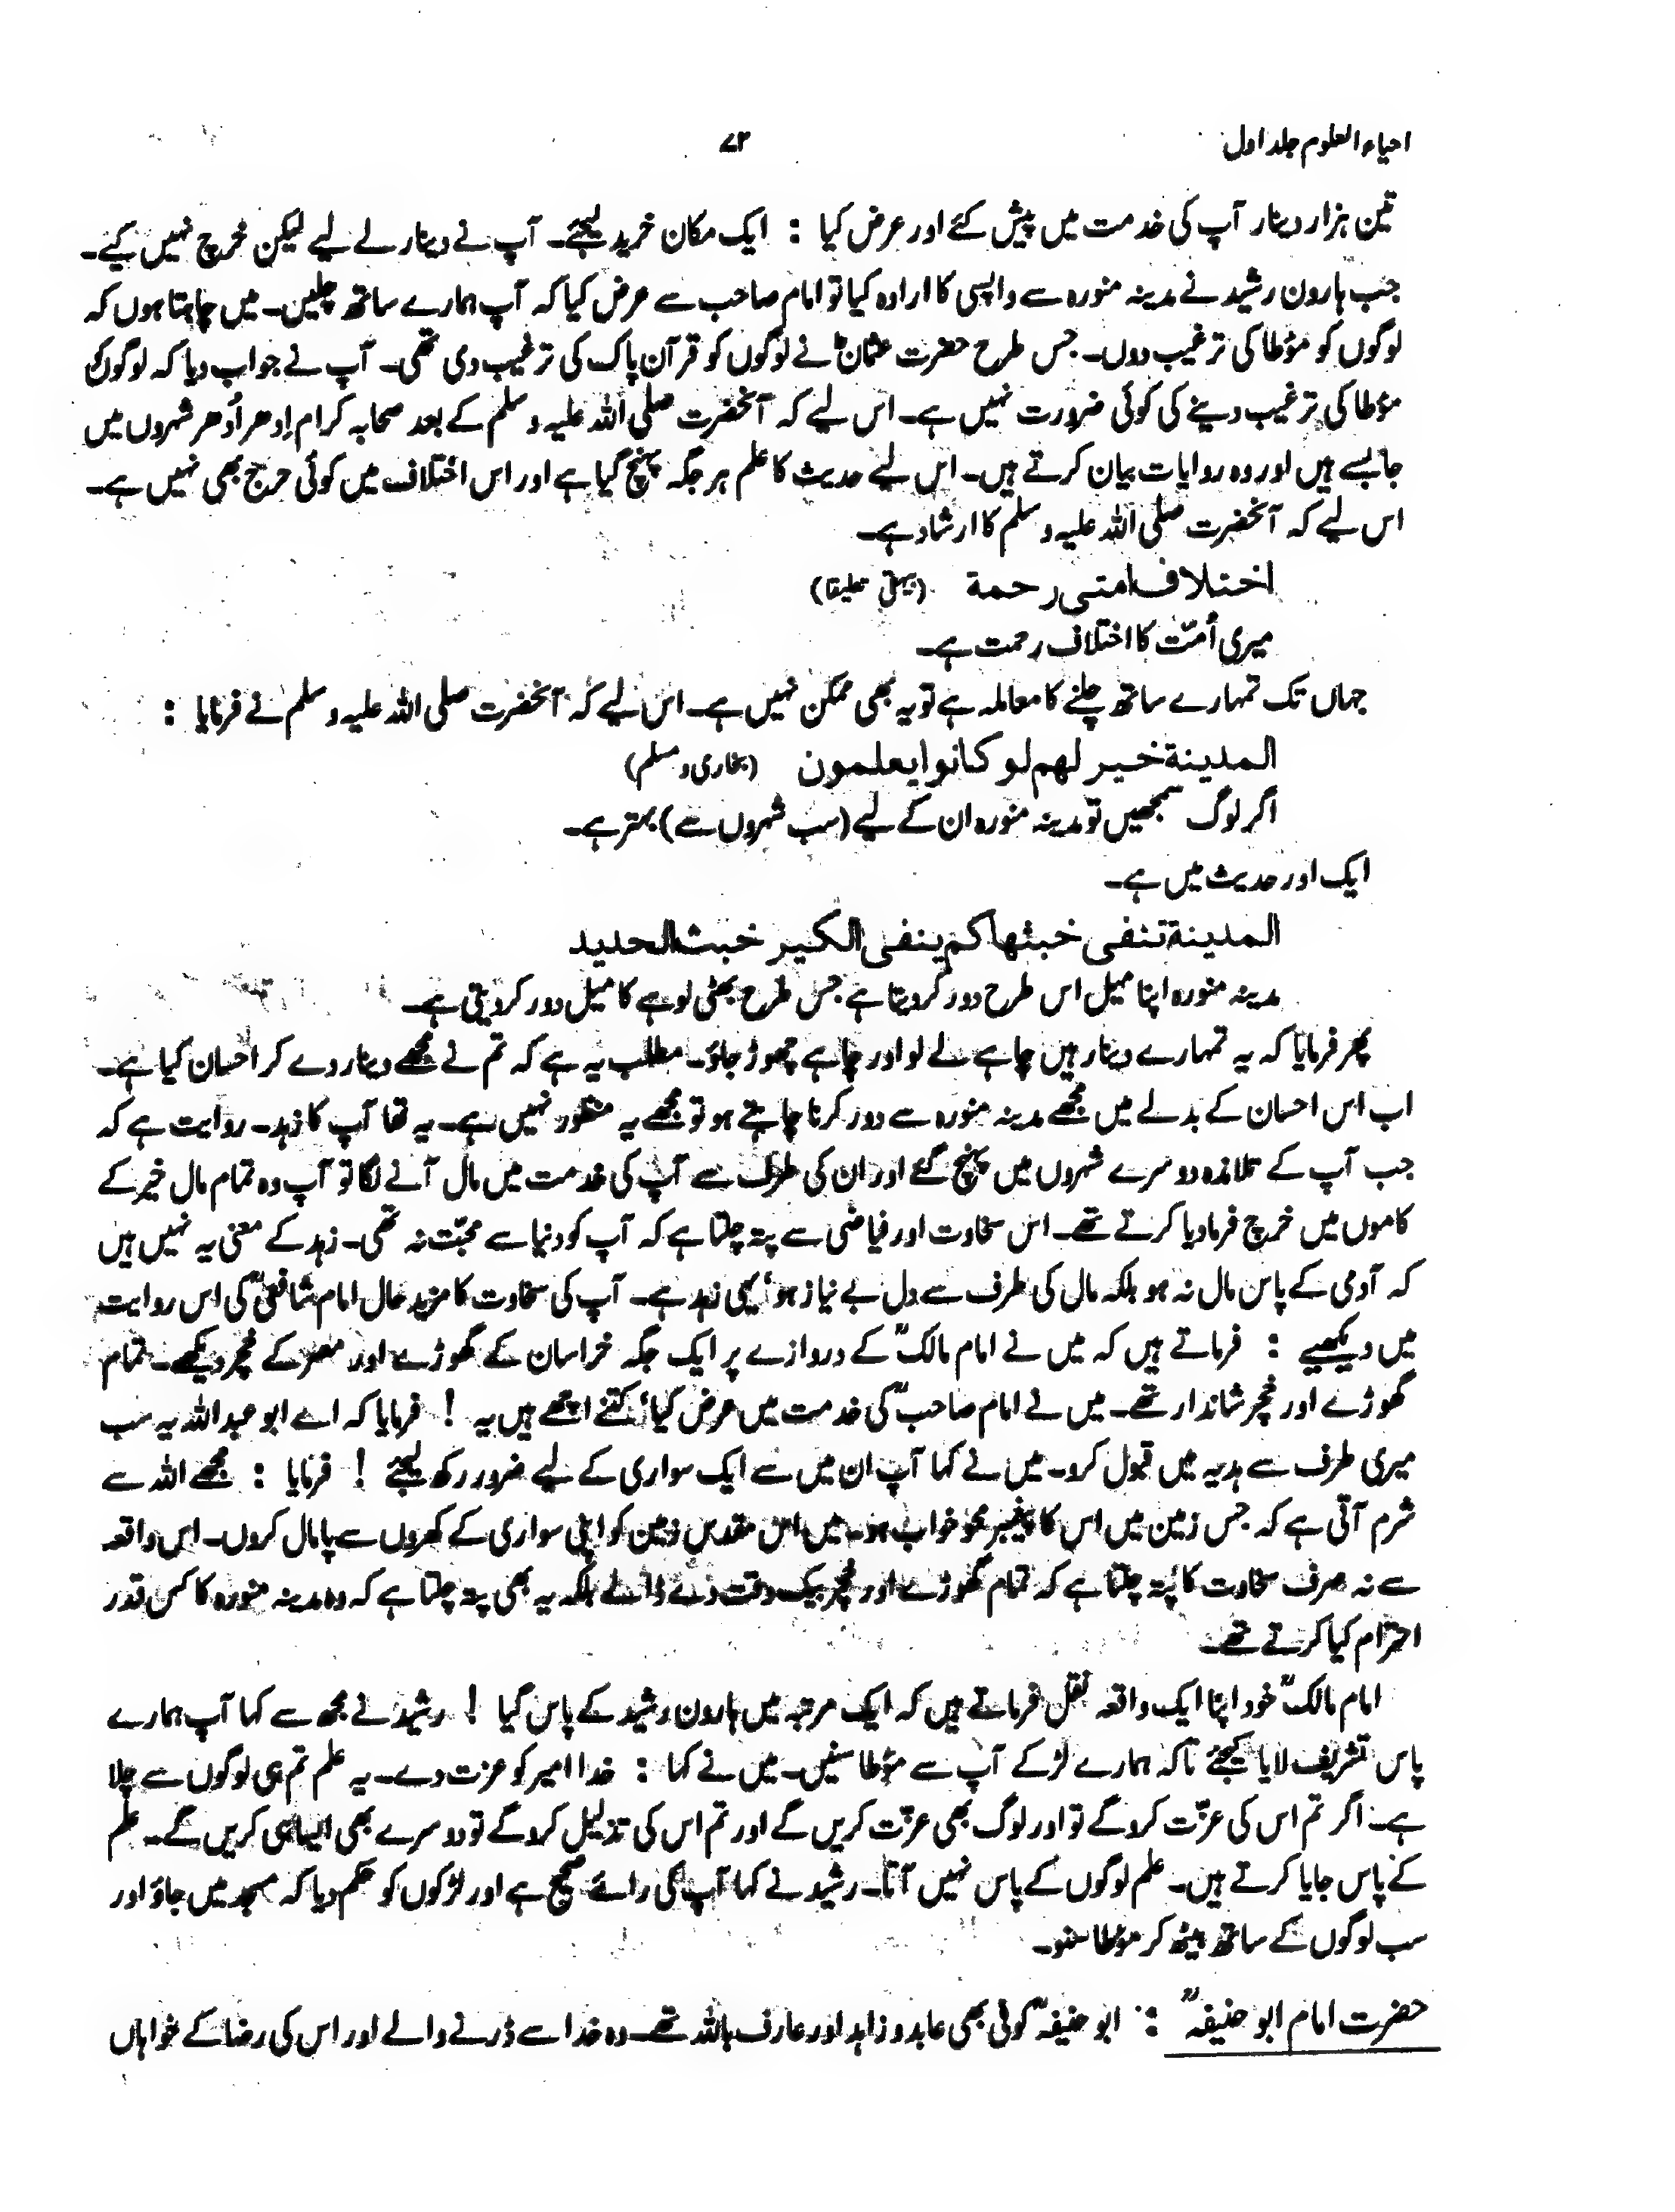 احیاء العلوم جلد اول
۷۳
تین ہزار دینار آپ کی خدمت میں پیش کئے اور عرض کیا : ایک مکان خرید لیجئے۔ آپ نے دینار لے لیے لیکن خرچ نہیں کیے۔
جب ہارون رشید نے مدینہ منورہ سے واپسی کا ارادہ کیا تو امام صاحب سے عرض کیا کہ آپ ہمارے ساتھ چلیں۔ میں چاہتا ہوں کہ
لوگوں کو مؤطا کی ترغیب دوں۔ جس طرح حضرت عثمانؓ نے لوگوں کو قرآن پاک کی ترغیب دی تھی۔ آپ نے جواب دیا کہ لوگوں کو
مؤطا کی ترغیب دینے کی کوئی ضرورت نہیں ہے۔ اس لیے کہ آنحضرت صلی اللہ علیہ وسلم کے بعد صحابہ کرام اِدھر اُدھر شہروں میں
جابسے ہیں اور وہ روایات بیان کرتے ہیں۔ اس لیے حدیث کا علم ہر جگہ پہنچ گیا ہے اور اس اختلاف میں کوئی حرج بھی نہیں ہے۔
اس لیے کہ آنحضرت صلی اللہ علیہ وسلم کا ارشاد ہے۔
اختلاف امتی رحمة (بیہقی تعلیقا)
میری اُمّت کا اختلاف رحمت ہے۔
جہاں تک تمہارے ساتھ چلنے کا معاملہ ہے تو یہ بھی ممکن نہیں ہے۔ اس لیے کہ آنحضرت صلی اللہ علیہ وسلم نے فرمایا :
المدینة خیر لهم لو کانوا یعلمون (بخاری و مسلم)
اگر لوگ سمجھیں تو مدینہ منورہ ان کے لیے (سب شہروں سے) بہتر ہے۔
ایک اور حدیث میں ہے۔
المدینة تنفی خبثها کم ینفی الکیر خبث الحدید
مدینہ منورہ اپنا میل اس طرح دور کر دیتا ہے جس طرح بھٹی لوہے کا میل دور کر دیتی ہے۔
پھر فرمایا کہ یہ تمہارے دینار ہیں چاہے لے لو اور چاہے چھوڑ جاؤ۔ مطلب یہ ہے کہ تم نے مجھے دینار دے کر احسان کیا ہے۔
اب اس احسان کے بدلے میں مجھے مدینہ منورہ سے دور کرنا چاہتے ہو تو مجھے یہ منظور نہیں ہے۔ یہ تھا آپ کا زہد۔ روایت ہے کہ
جب آپ کے تلامذہ دوسرے شہروں میں پہنچ گئے اور ان کی طرف سے آپ کی خدمت میں مال آنے لگا تو آپ وہ تمام مال خیر کے
کاموں میں خرچ فرمادیا کرتے تھے۔ اس سخاوت اور فیاضی سے پتہ چلتا ہے کہ آپ کو دنیا سے محبّت نہ تھی۔ زہد کے معنی یہ نہیں ہیں
کہ آدمی کے پاس مال نہ ہو بلکہ مال کی طرف سے دل بے نیاز ہو، یہی زہد ہے۔ آپ کی سخاوت کا مزید حال امام شافعیؒ کی اس روایت
میں دیکھیے : فرماتے ہیں کہ میں نے امام مالکؒ کے دروازے پر ایک جگہ خراسان کے گھوڑے اور مصر کے خچر دیکھے۔ تمام
گھوڑے اور خچر شاندار تھے۔ میں نے امام صاحبؒ کی خدمت میں عرض کیا، کتنے اچھے ہیں یہ ! فرمایا کہ اے ابو عبداللہ یہ سب
میری طرف سے ہدیہ میں قبول کرو۔ میں نے کہا آپ ان میں سے ایک سواری کے لیے ضرور رکھ لیجئے ! فرمایا : مجھے اللہ سے
شرم آتی ہے کہ جس زمین میں اس کا پیغمبر محو خواب ہو۔ میں اس مقدس زمین کو اپنی سواری کے کھروں سے پامال کروں۔ اس واقعہ
سے نہ صرف سخاوت کا پتہ چلتا ہے کہ تمام گھوڑے اور خچر بیک وقت دے ڈالے بلکہ یہ بھی پتہ چلتا ہے کہ وہ مدینہ منورہ کا کس قدر
احترام کیا کرتے تھے۔
امام مالکؒ خود اپنا ایک واقعہ نقل فرماتے ہیں کہ ایک مرتبہ میں ہارون رشید کے پاس گیا ! رشید نے مجھ سے کہا آپ ہمارے
پاس تشریف لایا کیجئے تاکہ ہمارے لڑکے آپ سے مؤطا سنیں۔ میں نے کہا : خدا امیر کو عزت دے۔ یہ علم تم ہی لوگوں سے چلا
ہے۔ اگر تم اس کی عزّت کرو گے تو اور لوگ بھی عزّت کریں گے اور تم اس کی تذلیل کرو گے تو دوسرے بھی ایسا ہی کریں گے۔ علم
کے پاس جایا کرتے ہیں۔ علم لوگوں کے پاس نہیں آتا۔ رشید نے کہا آپ کی رائے صحیح ہے اور لڑکوں کو حکم دیا کہ مسجد میں جاؤ اور
سب لوگوں کے ساتھ بیٹھ کر مؤطا سنو۔
حضرت امام ابو حنیفہؒ : ابو حنیفہؒ کوفی بھی عابد و زاہد اور عارف باللہ تھے۔ وہ خدا سے ڈرنے والے اور اس کی رضا کے خواہاں